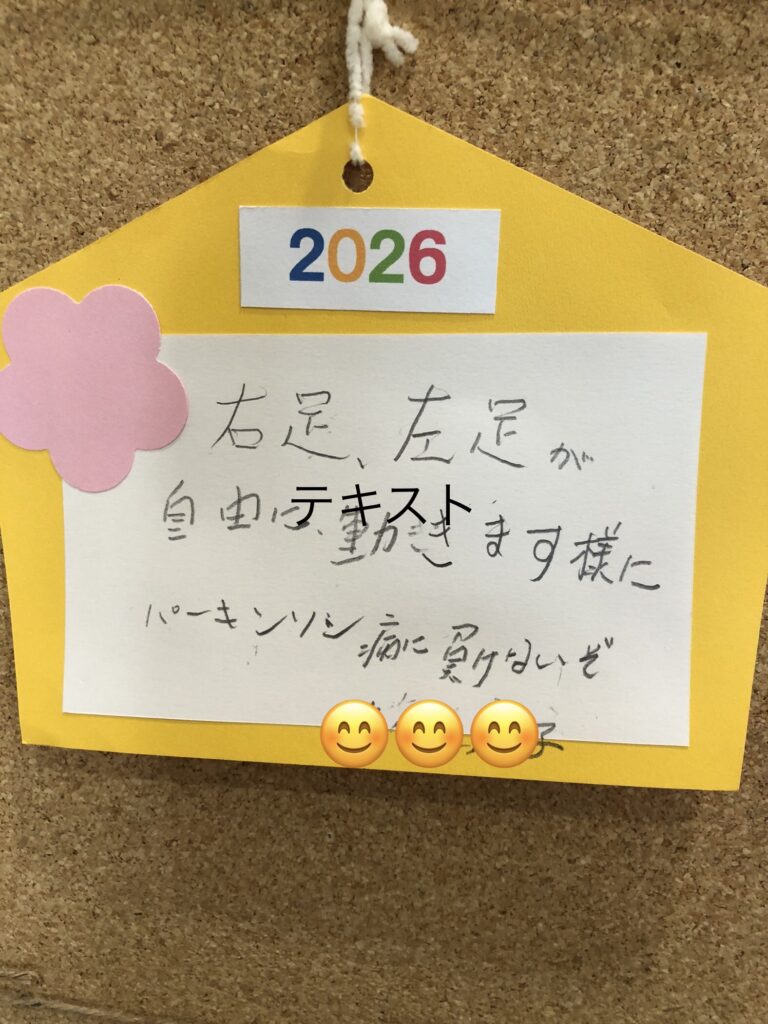 2026
右足、左足が
自由に、動きます様に
テキスト
パーキンソン病に負けないぞ
子